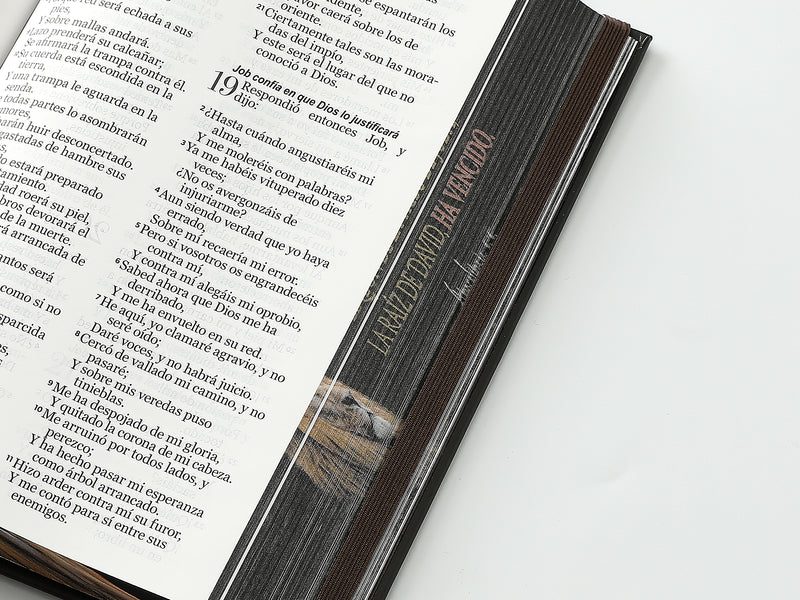 red será echada a sus
pies,
Y sobre mallas andará.
Lazo prenderá su calcañar;
Se afirmará la trampa contra él.
Su cuerda está escondida en la
tierra,
Y una trampa le aguarda en la
senda.
todas partes lo asombrarán
harán huir desconcertado.
gastadas de hambre sus
lo estará preparado
roerá su piel,
devorará el
de la muerte.
será arrancada de
como si no
esparcida
caerá sobre los de
oriente.
21 Ciertamente tales son las mora-
das del impío,
Y este será el lugar del que no
conoció a Dios.
Job confía en que Dios lo justificará
19 Respondió entonces Job, y
dijo:
2 ¿Hasta cuándo angustiaréis mi
alma,
Y me moleréis con palabras?
3 Ya me habéis vituperado diez
veces;
¿No os avergonzáis de
injuriarme?
4 Aun siendo verdad que yo haya
errado,
Sobre mí recaería mi error.
5 Pero si vosotros os engrandecéis
contra mí,
Y contra mí alegáis mi oprobio,
6 Sabed ahora que Dios me ha
derribado,
Y me ha envuelto en su red.
7 He aquí, yo clamaré agravio, y no
seré oído;
Daré voces, y no habrá juicio.
8 Cercó de vallado mi camino, y no
pasaré;
Y sobre mis veredas puso
tinieblas.
9 Me ha despojado de mi gloria,
Y quitado la corona de mi cabeza.
10 Me arruinó por todos lados, y
perezco;
Y ha hecho pasar mi esperanza
como árbol arrancado.
11 Hizo arder contra mí su furor,
Y me contó para sí entre sus
enemigos.
LA RAÍZ DE DAVID, HA VENCIDO.